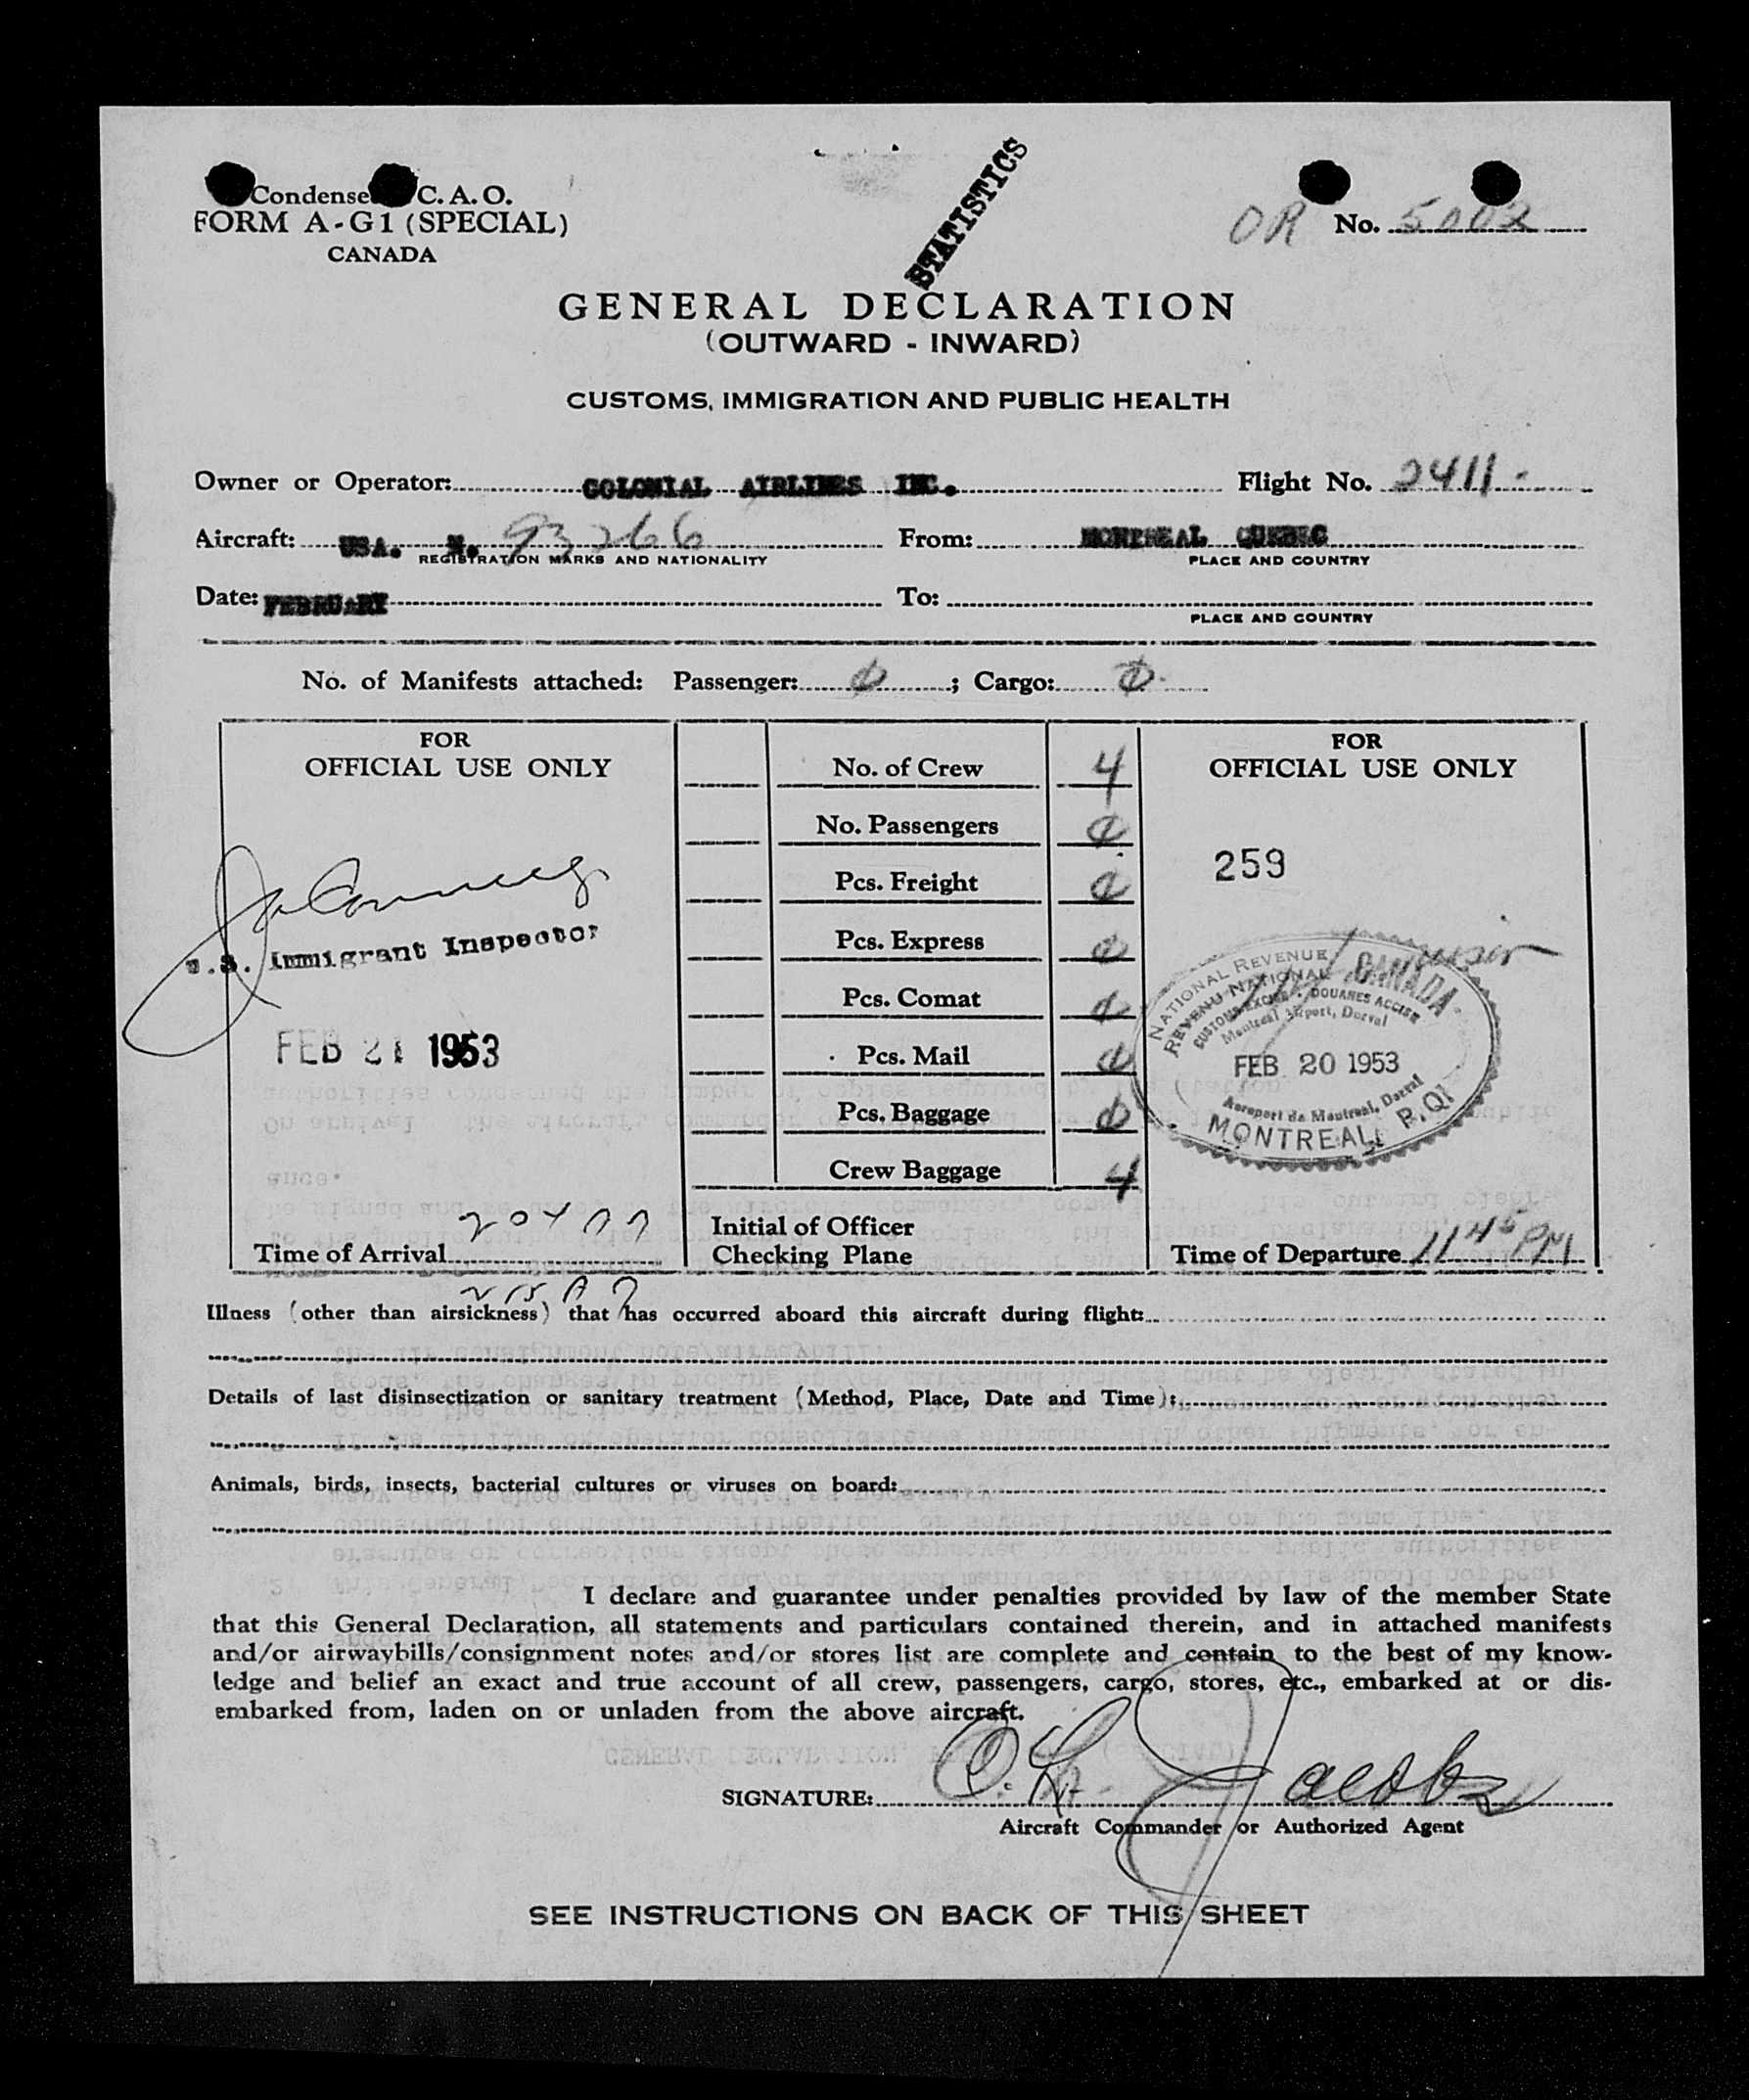 STATISTICS
Condense C. A. O.
FORM A-G1 (SPECIAL)
CANADA
OR No. 5002
GENERAL DECLARATION
(OUTWARD - INWARD)
CUSTOMS, IMMIGRATION AND PUBLIC HEALTH
Owner or Operator: COLONIAL AIRLINES INC. Flight No. 2411
Aircraft: USA. N. 93266 From: MONTREAL QUEBEC
REGISTRATION MARKS AND NATIONALITY PLACE AND COUNTRY
Date: FEBRUARY To:
PLACE AND COUNTRY
No. of Manifests attached: Passenger: 0 ; Cargo: 0
FOR
OFFICIAL USE ONLY
U.S. Immigrant Inspector
FEB 21 1953
Time of Arrival
No. of Crew 4
No. Passengers 0
Pcs. Freight 0
Pcs. Express 0
Pcs. Comat 0
Pcs. Mail 0
Pcs. Baggage 0
Crew Baggage 4
Initial of Officer
Checking Plane
FOR
OFFICIAL USE ONLY
259
NATIONAL REVENUE CANADA
REVENU NATIONAL
CUSTOMS EXCISE - DOUANES ACCISE
Montreal Airport, Dorval
FEB 20 1953
Aeroport de Montreal, Dorval
MONTREAL P.Q.
Time of Departure 11 45 PM
Illness (other than airsickness) that has occurred aboard this aircraft during flight:
Details of last disinsectization or sanitary treatment (Method, Place, Date and Time):
Animals, birds, insects, bacterial cultures or viruses on board:
I declare and guarantee under penalties provided by law of the member State
that this General Declaration, all statements and particulars contained therein, and in attached manifests
and/or airwaybills/consignment notes and/or stores list are complete and contain to the best of my know-
ledge and belief an exact and true account of all crew, passengers, cargo, stores, etc., embarked at or dis-
embarked from, laden on or unladen from the above aircraft.
SIGNATURE: O. L. Jacobs
Aircraft Commander or Authorized Agent
SEE INSTRUCTIONS ON BACK OF THIS SHEET